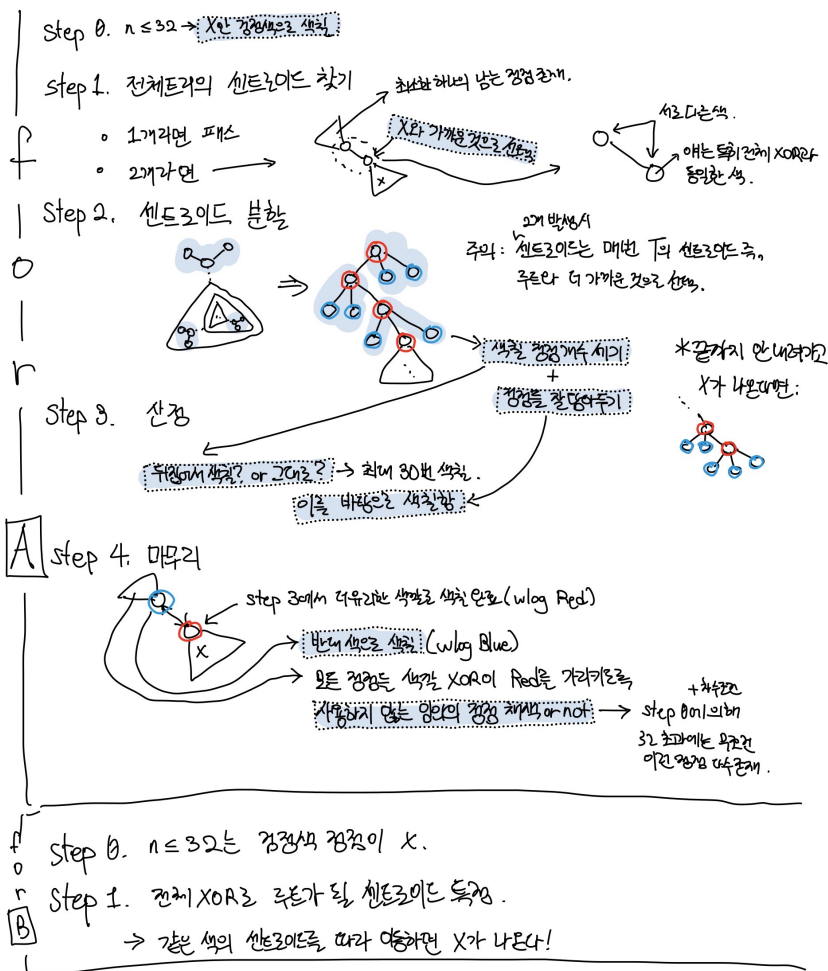 Step 0. n ≤ 32 → X만 검정색으로 색칠
Step 1. 전체트리의 센트로이드 찾기
최소한 하나의 남는 정점 존재.
• 1개라면 패스
• 2개라면
X와 가까운 것으로 선택
X
서로 다른 색.
얘는 특히 전체 XOR과
동일한 색.
Step 2. 센트로이드 분할
2개 발생시
주의: 센트로이드는 매번 T의 센트로이드 즉,
루트와 더 가까운 것으로 선택.
색칠 정점개수 세기
+
정점들 잘 담아두기
*끝까지 안내려가고
X가 나온다면:
Step 3. 산정
뒤집어서 색칠? or 그대로? → 최대 30번 색칠.
이를 바탕으로 색칠함.
for A
Step 4. 마무리
Step 3에서 더유리한 색깔로 색칠 완료 (wlog Red)
X
반대색으로 색칠 (wlog Blue)
모든 정점들 색깔 XOR이 Red를 가리키도록
사용하지 않는 임의의 정점 채색 or not → Step 0에 의해
32 초과에는 무조건
이런 정점 다수존재.
for B
Step 0. n ≤ 32는 검정색 정점이 X.
Step 1. 전체 XOR로 루트가 될 센트로이드 특정.
→ 같은 색의 센트로이드를 따라 이동하면 X가 나온다!